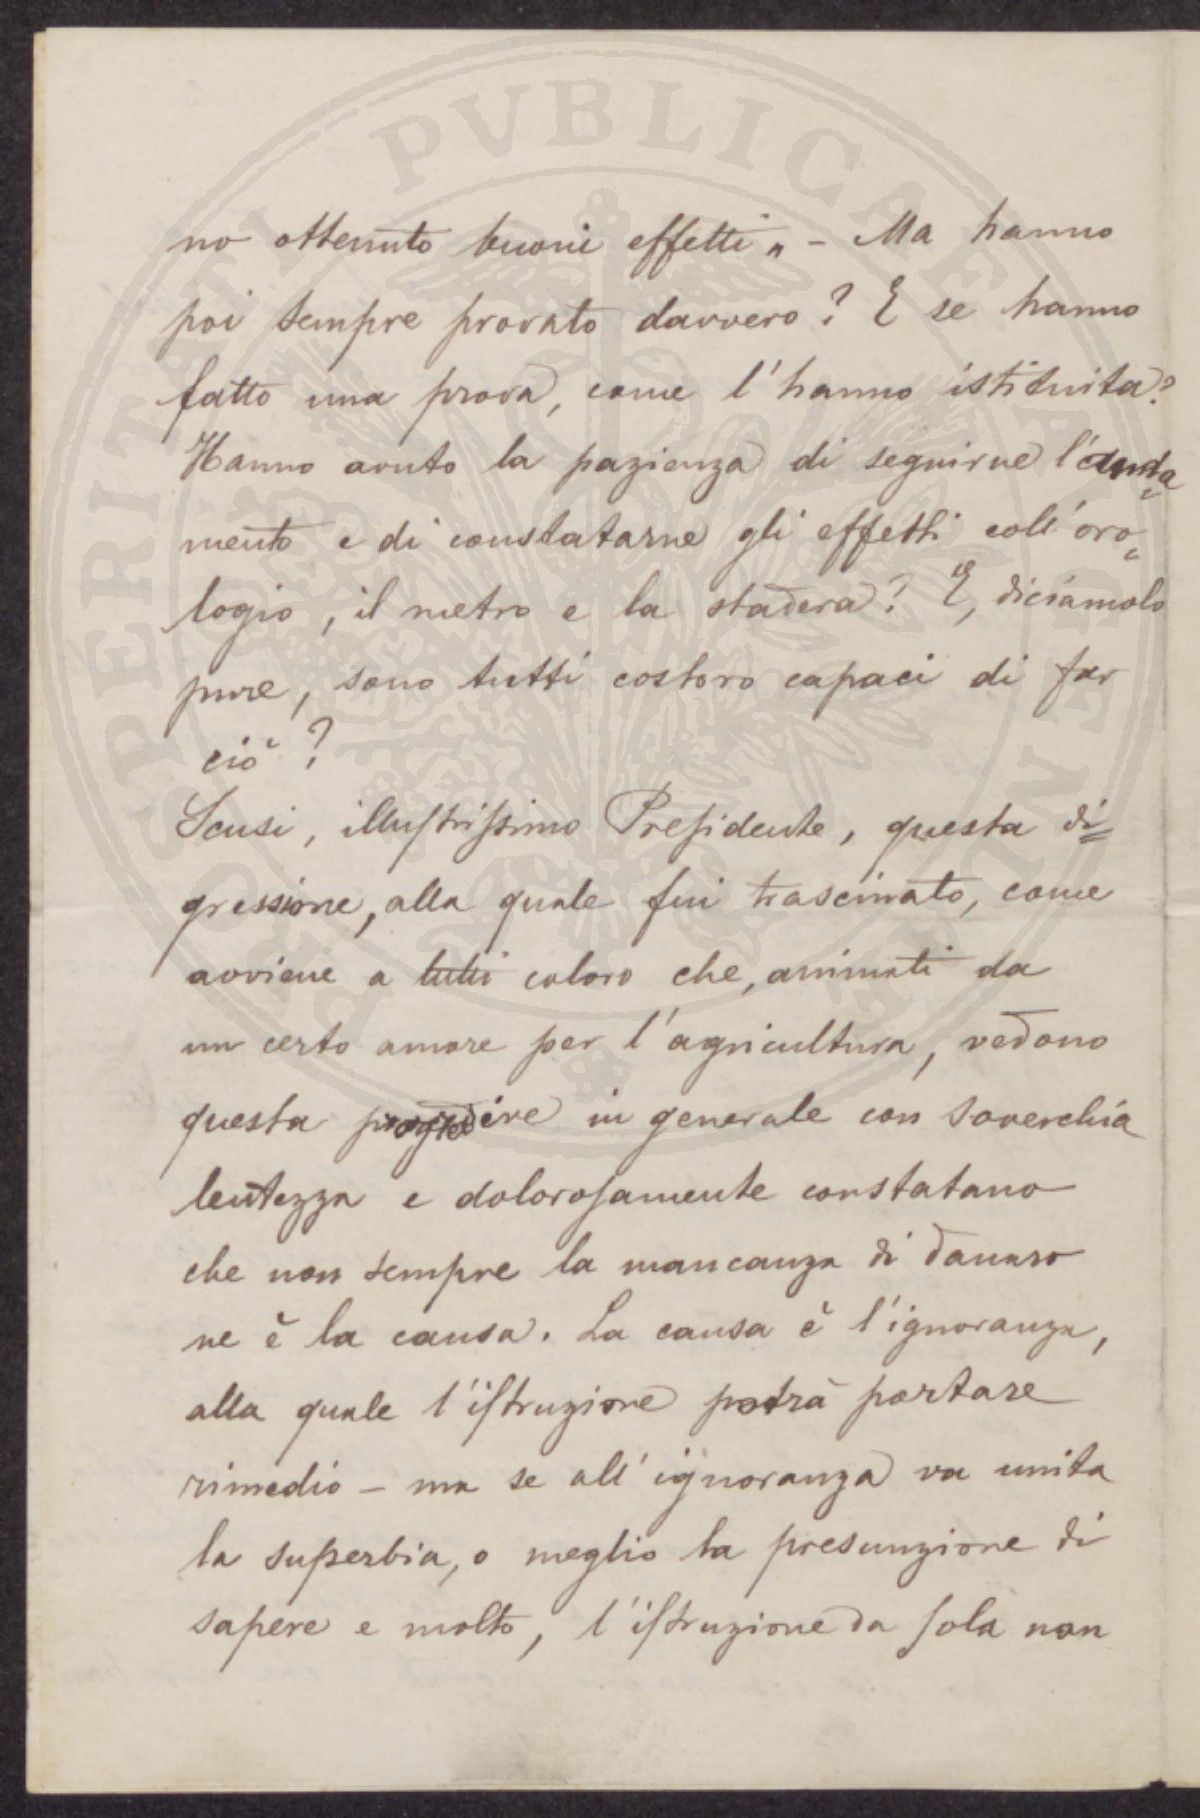 no ottenuto buoni effetti„ – Ma hanno
poi sempre provato davvero? E se hanno
fatto una prova, come l'hanno istituita?
Hanno avuto la pazienza di seguirne l'anda„
mento e di constatarne gli effetti coll'oro„
logio, il metro e la stadera? E, diciamolo
pure, sono tutti costoro capaci di far
ciò?
Scusi, illustrissimo Presidente, questa di=
gressione, alla quale fui trascinato, come
avviene a tutti coloro che, animati da
un certo amore per l'agricultura, vedono
questa progredire in generale con soverchia
lentezza e dolorosamente constatano
che non sempre la mancanza di danaro
ne è la causa. La causa è l'ignoranza,
alla quale l'istruzione potrà portare
rimedio – ma se all'ignoranza va unita
la superbia, o meglio la presunzione di
sapere e molto, l'istruzione da sola non
PROSPERITATI PVBLICAE AVGENDAE